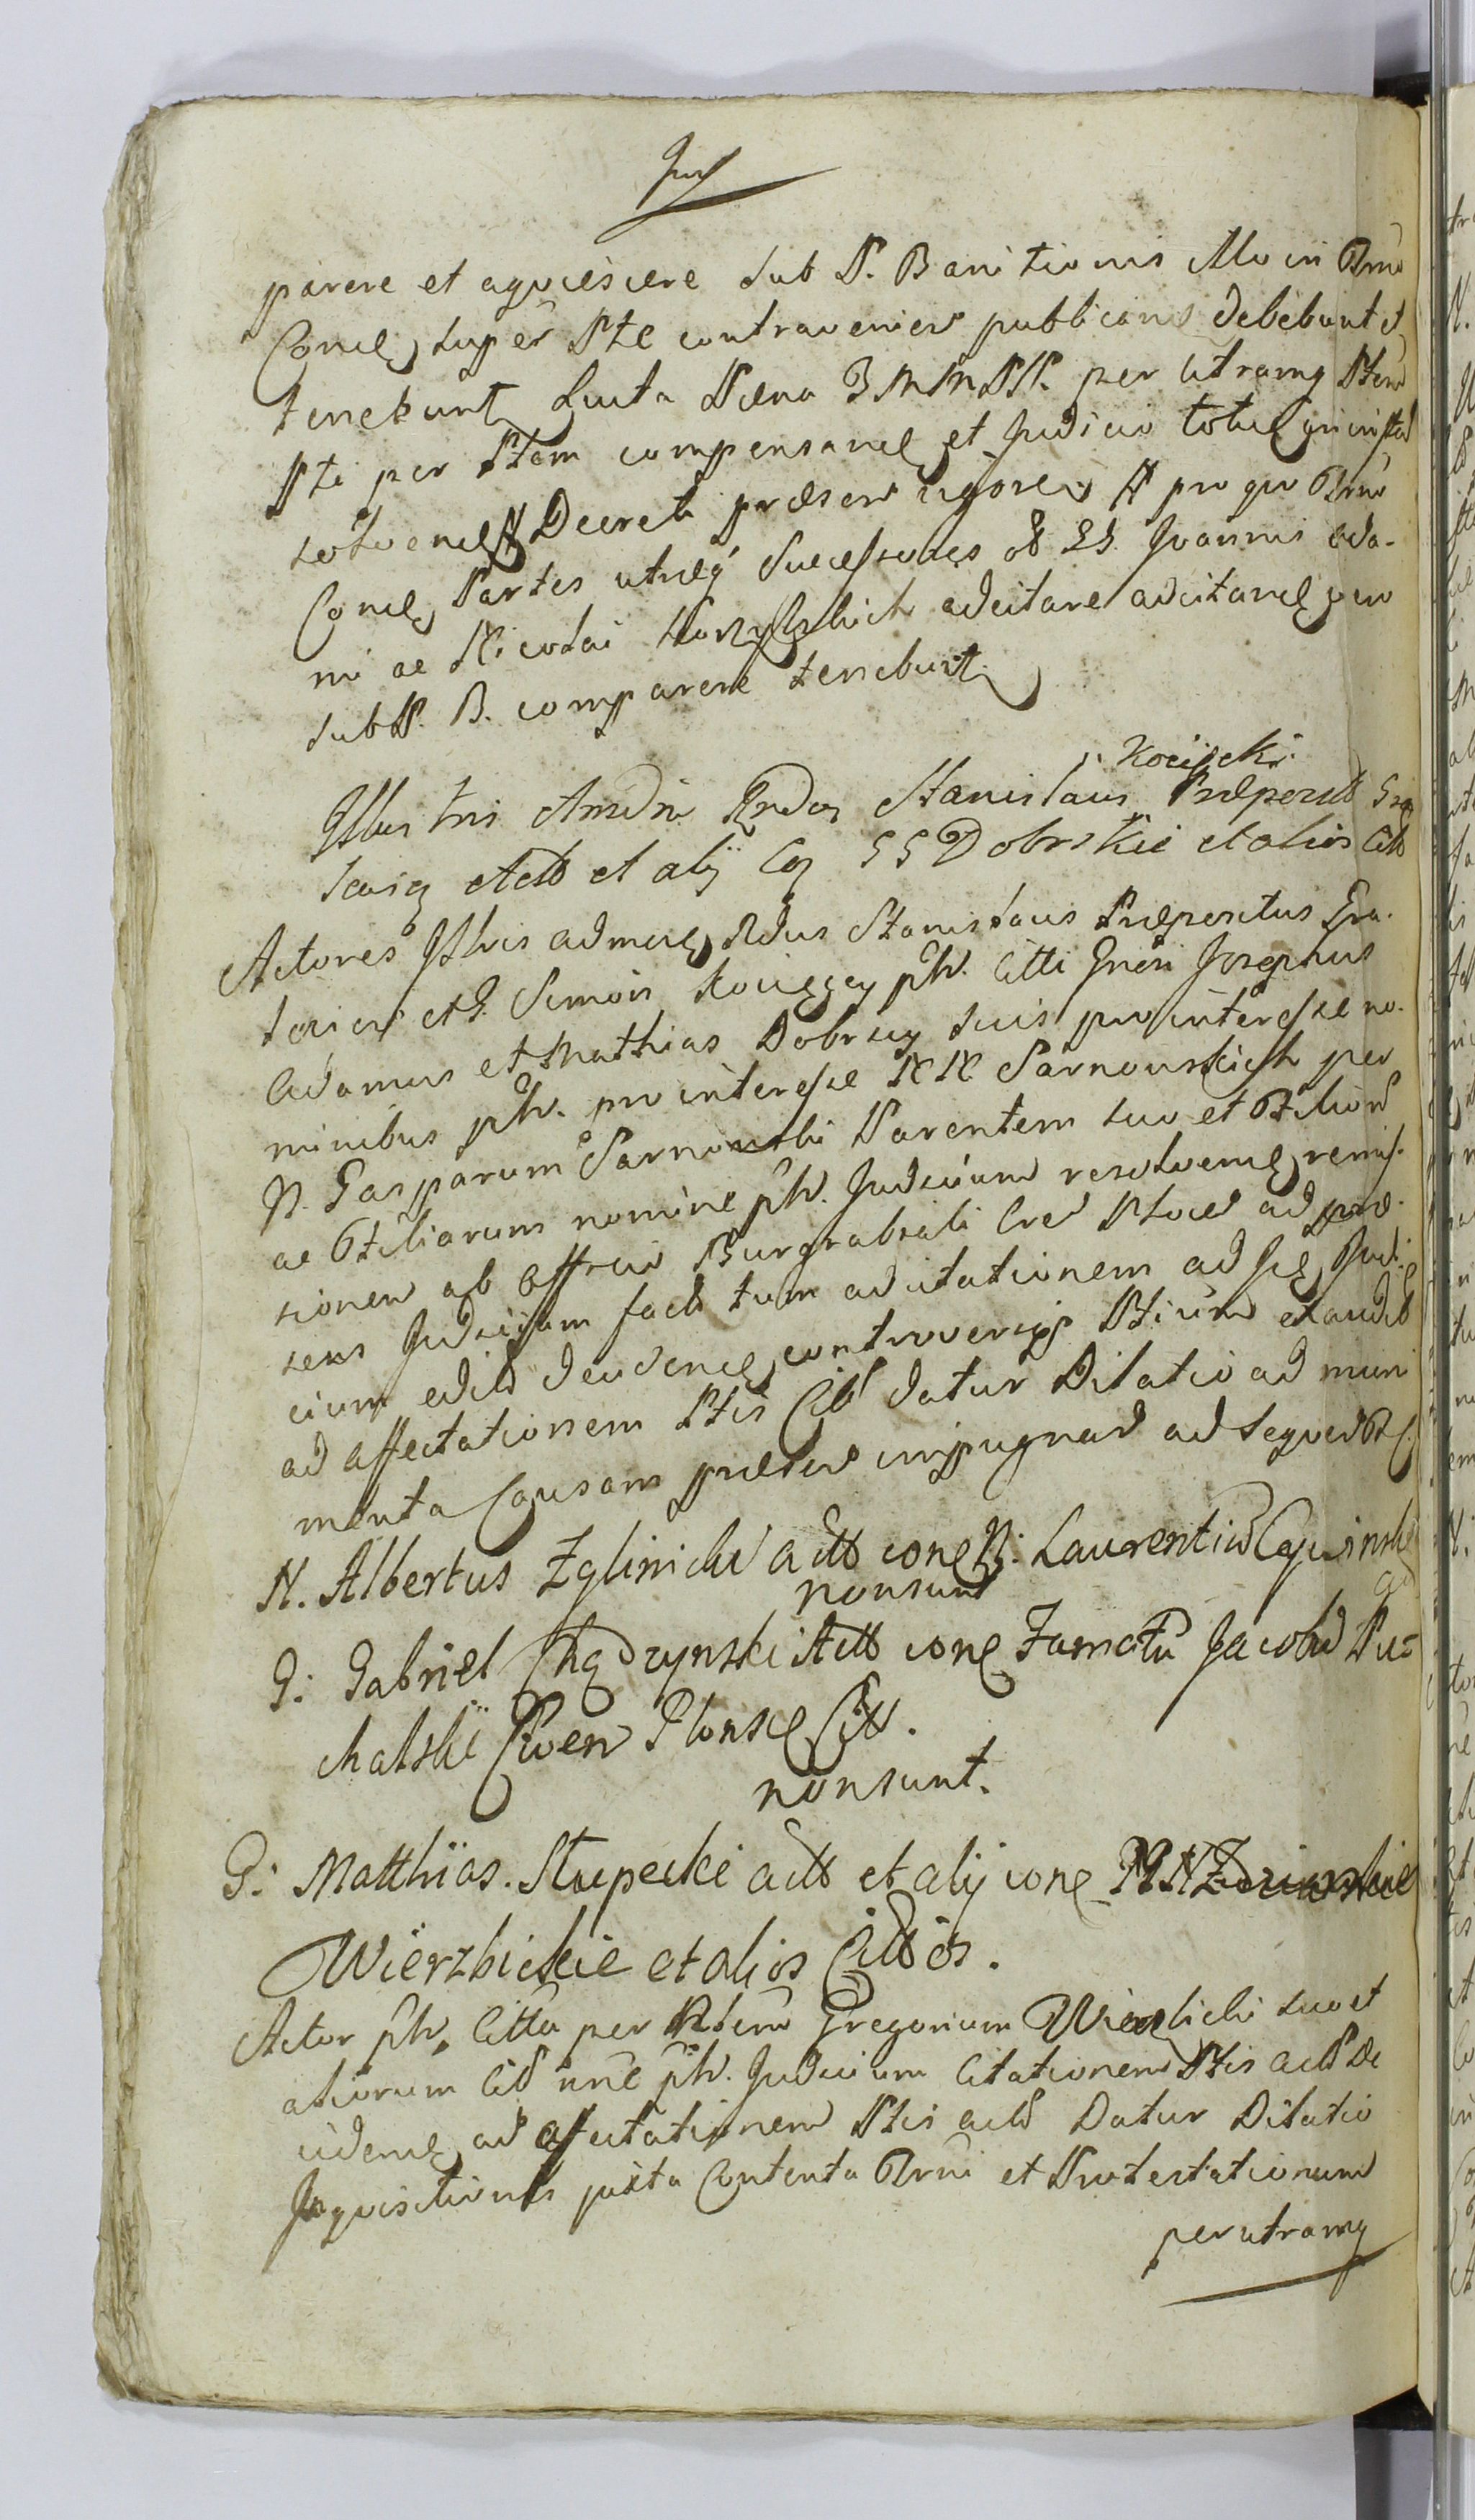 parere et aquiescere sub P. Banitionis illo in Trno
Conde super Pte contravenien publicans debebunt et
tenebunt Lucta Pœna 3 M M PP. per utramq Ptem
Pti per Ptem compensande et Judicio totide
solvende Decreti præsen vigore pro quo Trno
Conde Partes utræq Successores GG Joannis Ada-
mi ac Nicolai adcitare adcitande vero
sub P. B. comparere tenebunt
Kocięcki
Illustris Amdm Rndus Stanislaus Præposit
Actt et alij Coq GG Dobrskie et alios Citt
Actores Illris admode Rdus Stanislaus Præpositus Gra-
et G. Simon Kocięccy ph. Citti Gnosi Josephus
Adamus et Mathias Dobrscy suis pro interesse no-
minibus ph. pro interesse NN Sarnowskich per
N. Gasparum Sarnowski Parentem suo et Filior
ac Filiarum nomine ph. Judicium resolvende remis-
sionem ab Officio Burgrabiali Cren Ploced ad præ-
sens Judicium fact tum adcitationem ad se Judi-
cium edit decidende controversijs Ptium exaudit
ad affectationem Ptis Citt datur Dilatio ad muni
menta Causam præsen impugnand ad Sequen
N. Albertus Zglinicki Actt cone N. Laurentium
non sunt
G. Gabriel Chądzynski Actt cone Famatu Jacobu Pu-
chalski Civen Plonsc Citt.
non sunt.
G. Matthias Słupecki Actt et alij cone MM NN
Wierzbickie et alios Cittos.
Actor ph. Citta per Ntem Gregorium Wierzbicki suo et
aliorum Citt nne ph. Judicium Citationem Ptis Actt De
cidende ad affectationem Ptis Actt Datur Dilatio
Inquisitionis juxta Contenta Trni et Protestationum
per utramq